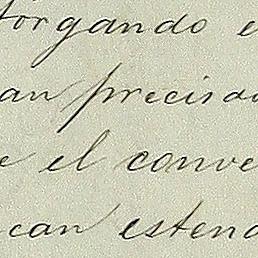 torgando e
an precisa
e el conve
can estend